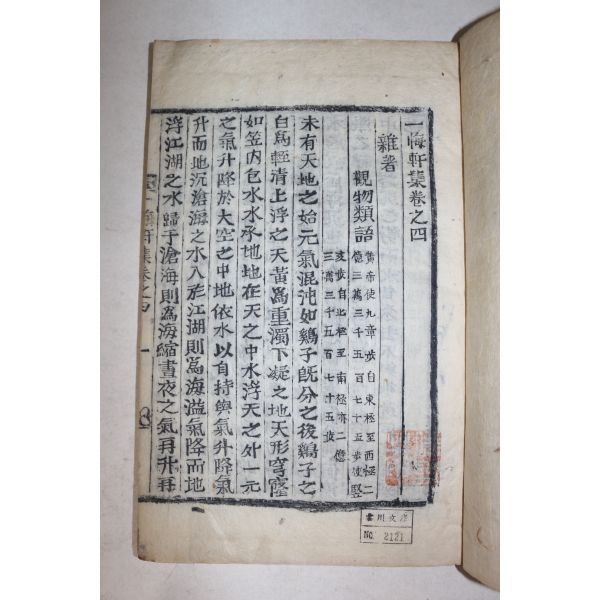 一悔軒集卷之四
雜著
觀物類語
黃帝使九章步自東極至西極二
億三萬三千五百七十五步使竪
亥步自北極至南極亦二億
三萬三千五百七十五步
未有天地之始元氣混沌如鷄子旣分之後鷄子之
白爲輕淸上浮之天黃爲重濁下凝之地天形穹窿
如笠內包水水承地地在天之中水浮天之外一元
之氣升降於大空之中地依水以自持與氣升降氣
升而地沉滄海之水入於江湖則爲海溢氣降而地
浮江湖之水歸于滄海則爲海縮晝夜之氣再升再
軒集卷之四
一
雲川文庫
No. 2121